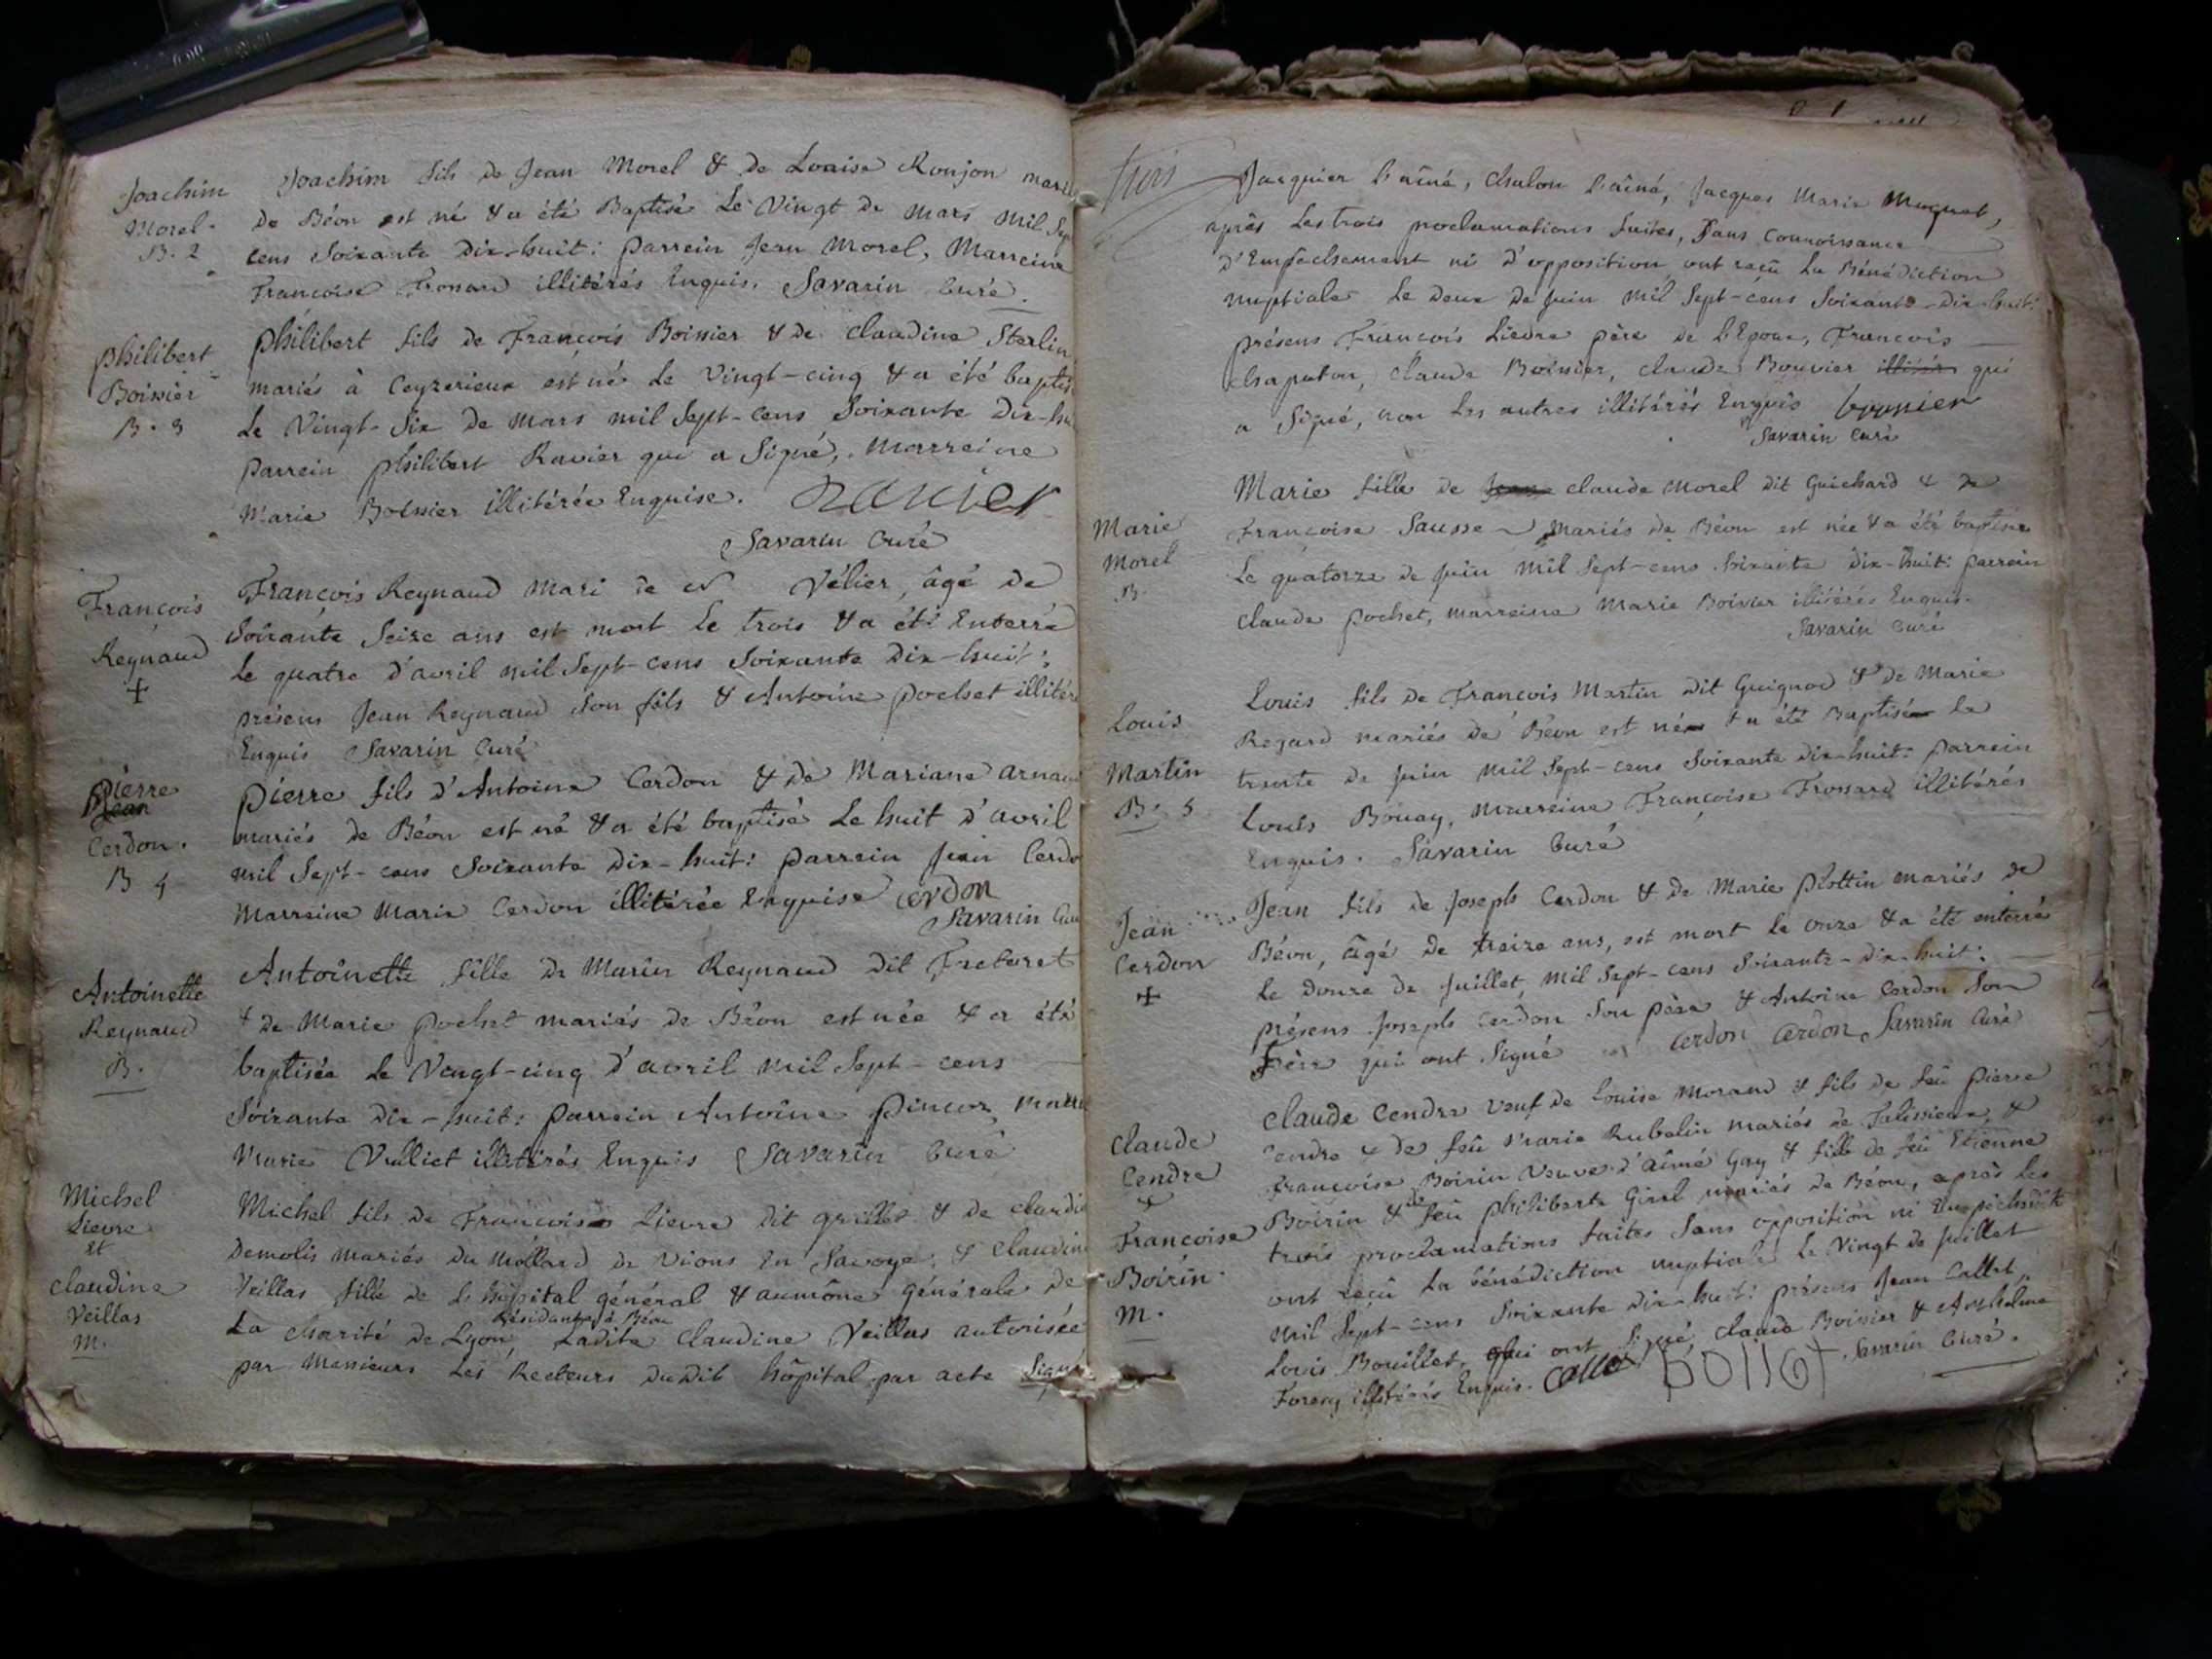 Joachim
Morel.
B. 2
Joachim fils de Jean Morel & de Louise Roujon
de Béon est né & a été Baptisé Le Vingt de Mars Mil Sept
cens Soixante Dix-huit: parrein Jean Morel, Marreine
Francoise Frossard illitérés Enquis. Savarin Curé.
Philibert
Boinier
B. 3
Philibert fils de François Boinier & de Claudine Sterlin
mariés à Ceyzerieux est né Le Vingt-cinq & a été baptisé
Le Vingt-Six de Mars mil Sept-cens Soixante Dix-hu
parrein philibert Ravier qui a Signé, Marreine
Marie Boinier illitérée Enquise. Ravier
Savarin Curé
François
Reynaud
+
François Reynaud Mari de N Vélier, âgé de
Soixante Seize ans est mort Le trois & a été Enterré
Le quatre d'avril mil Sept-cens Soixante Dix-huit:
présens Jean Reynaud Son fils & Antoine pochet illitéré
Enquis Savarin Curé
Pierre
Jean
Cerdon.
B 4
Pierre fils d'Antoine Cerdon & de Mariane Arnau
mariés de Béon est né & a été baptisé Le huit d'avril
mil Sept-cens Soixante Dix-huit: parrein Jean Cerdo
Marreine Marie Cerdon illitérée Enquise Cerdon
Savarin Cu
Antoinette
Reynaud
B.
Antoinette fille de Marin Reynaud Dit Freteret
& de Marie pochet mariés de Béon est née & a été
baptisée Le Vingt-cinq d'avril Mil Sept-cens
Soixante Dix-huit: parrein Antoine Pincor, Marre
Marie Vulliet illitérés Enquis Savarin Curé
Michel
Lievre
Et
Claudine
Veillas
M.
Michel fils de François Lievre Dit grillet & de Claudi
Demolis mariés du Mollard de Vions En Savoye, & Claudin
Veillas fille de L'hôpital général & aumône générale de
Résidante à Béon
La charité de Lyon, Ladite Claudine Veillas autorisée
par Messieurs Les Recteurs Dudit hôpital par acte Signé
Jacquier L'aîné, Chalon L'aîné, Jacques Marie Muguet,
après Les trois proclamations faites, Sans connoissance
d'Empêchement ni d'opposition ont reçû La Bénédiction
nuptiale Le Deux de Juin Mil Sept-cens Soixante-Dix-huit:
présens François Lievre père de L'Epoux, François
Chaputon, Claude Boinier, Claude Bouvier illitér qui
a Signé, non Les autres illitérés Enquis bouvier
Savarin Curé
Marie
Morel
B.
Marie fille de Jean Claude Morel Dit Guichard & de
Françoise Sausse Mariés de Béon est née & a été baptisée
Le quatorze de Juin Mil Sept-cens Soixante Dix-huit: parrein
Claude pochet, marreine Marie Boinier illitérés Enquis.
Savarin Curé
Louis
Martin
B. 5
Louis fils de François Martin Dit Guignod & de Marie
Regard mariés de Béon est né & a été Baptisé Le
trente de Juin Mil Sept-cens Soixante Dix-huit: parrein
Louis Bouay, Marreine Françoise Frossard illitérés
Enquis. Savarin Curé
Jean
Cerdon
+
Jean fils de Joseph Cerdon & de Marie Plottin mariés de
Béon, âgé de treize ans, est mort Le onze & a été enterré
Le Douze de Juillet, Mil Sept-cens Soixante-Dix-huit:
présens Joseph Cerdon Son père & Antoine Cerdon Son
frère qui ont Signé Cerdon Cerdon Savarin Curé
Claude
Cendre
&
Françoise
Boirin.
M.
Claude Cendre Veuf de Louise Morand & fils de feû Pierre
Cendre & de feû Marie Rubelin mariés de Talissieux, &
Françoise Boirin Veuve d'aimé Gay & fille de feû Etienne
Boirin & de feû Philiberte Girel mariés de Béon, après Les
trois proclamations faites Sans opposition ni Empêchement
ont reçû La bénédiction nuptiale Le Vingt de Juillet
Mil Sept-cens Soixante Dix-huit: présens Jean Callet,
Louis Bouillet, qui ont Signé, Claude Boinier & Anthelme
Forey illitérés Enquis. Callet Savarin Curé.